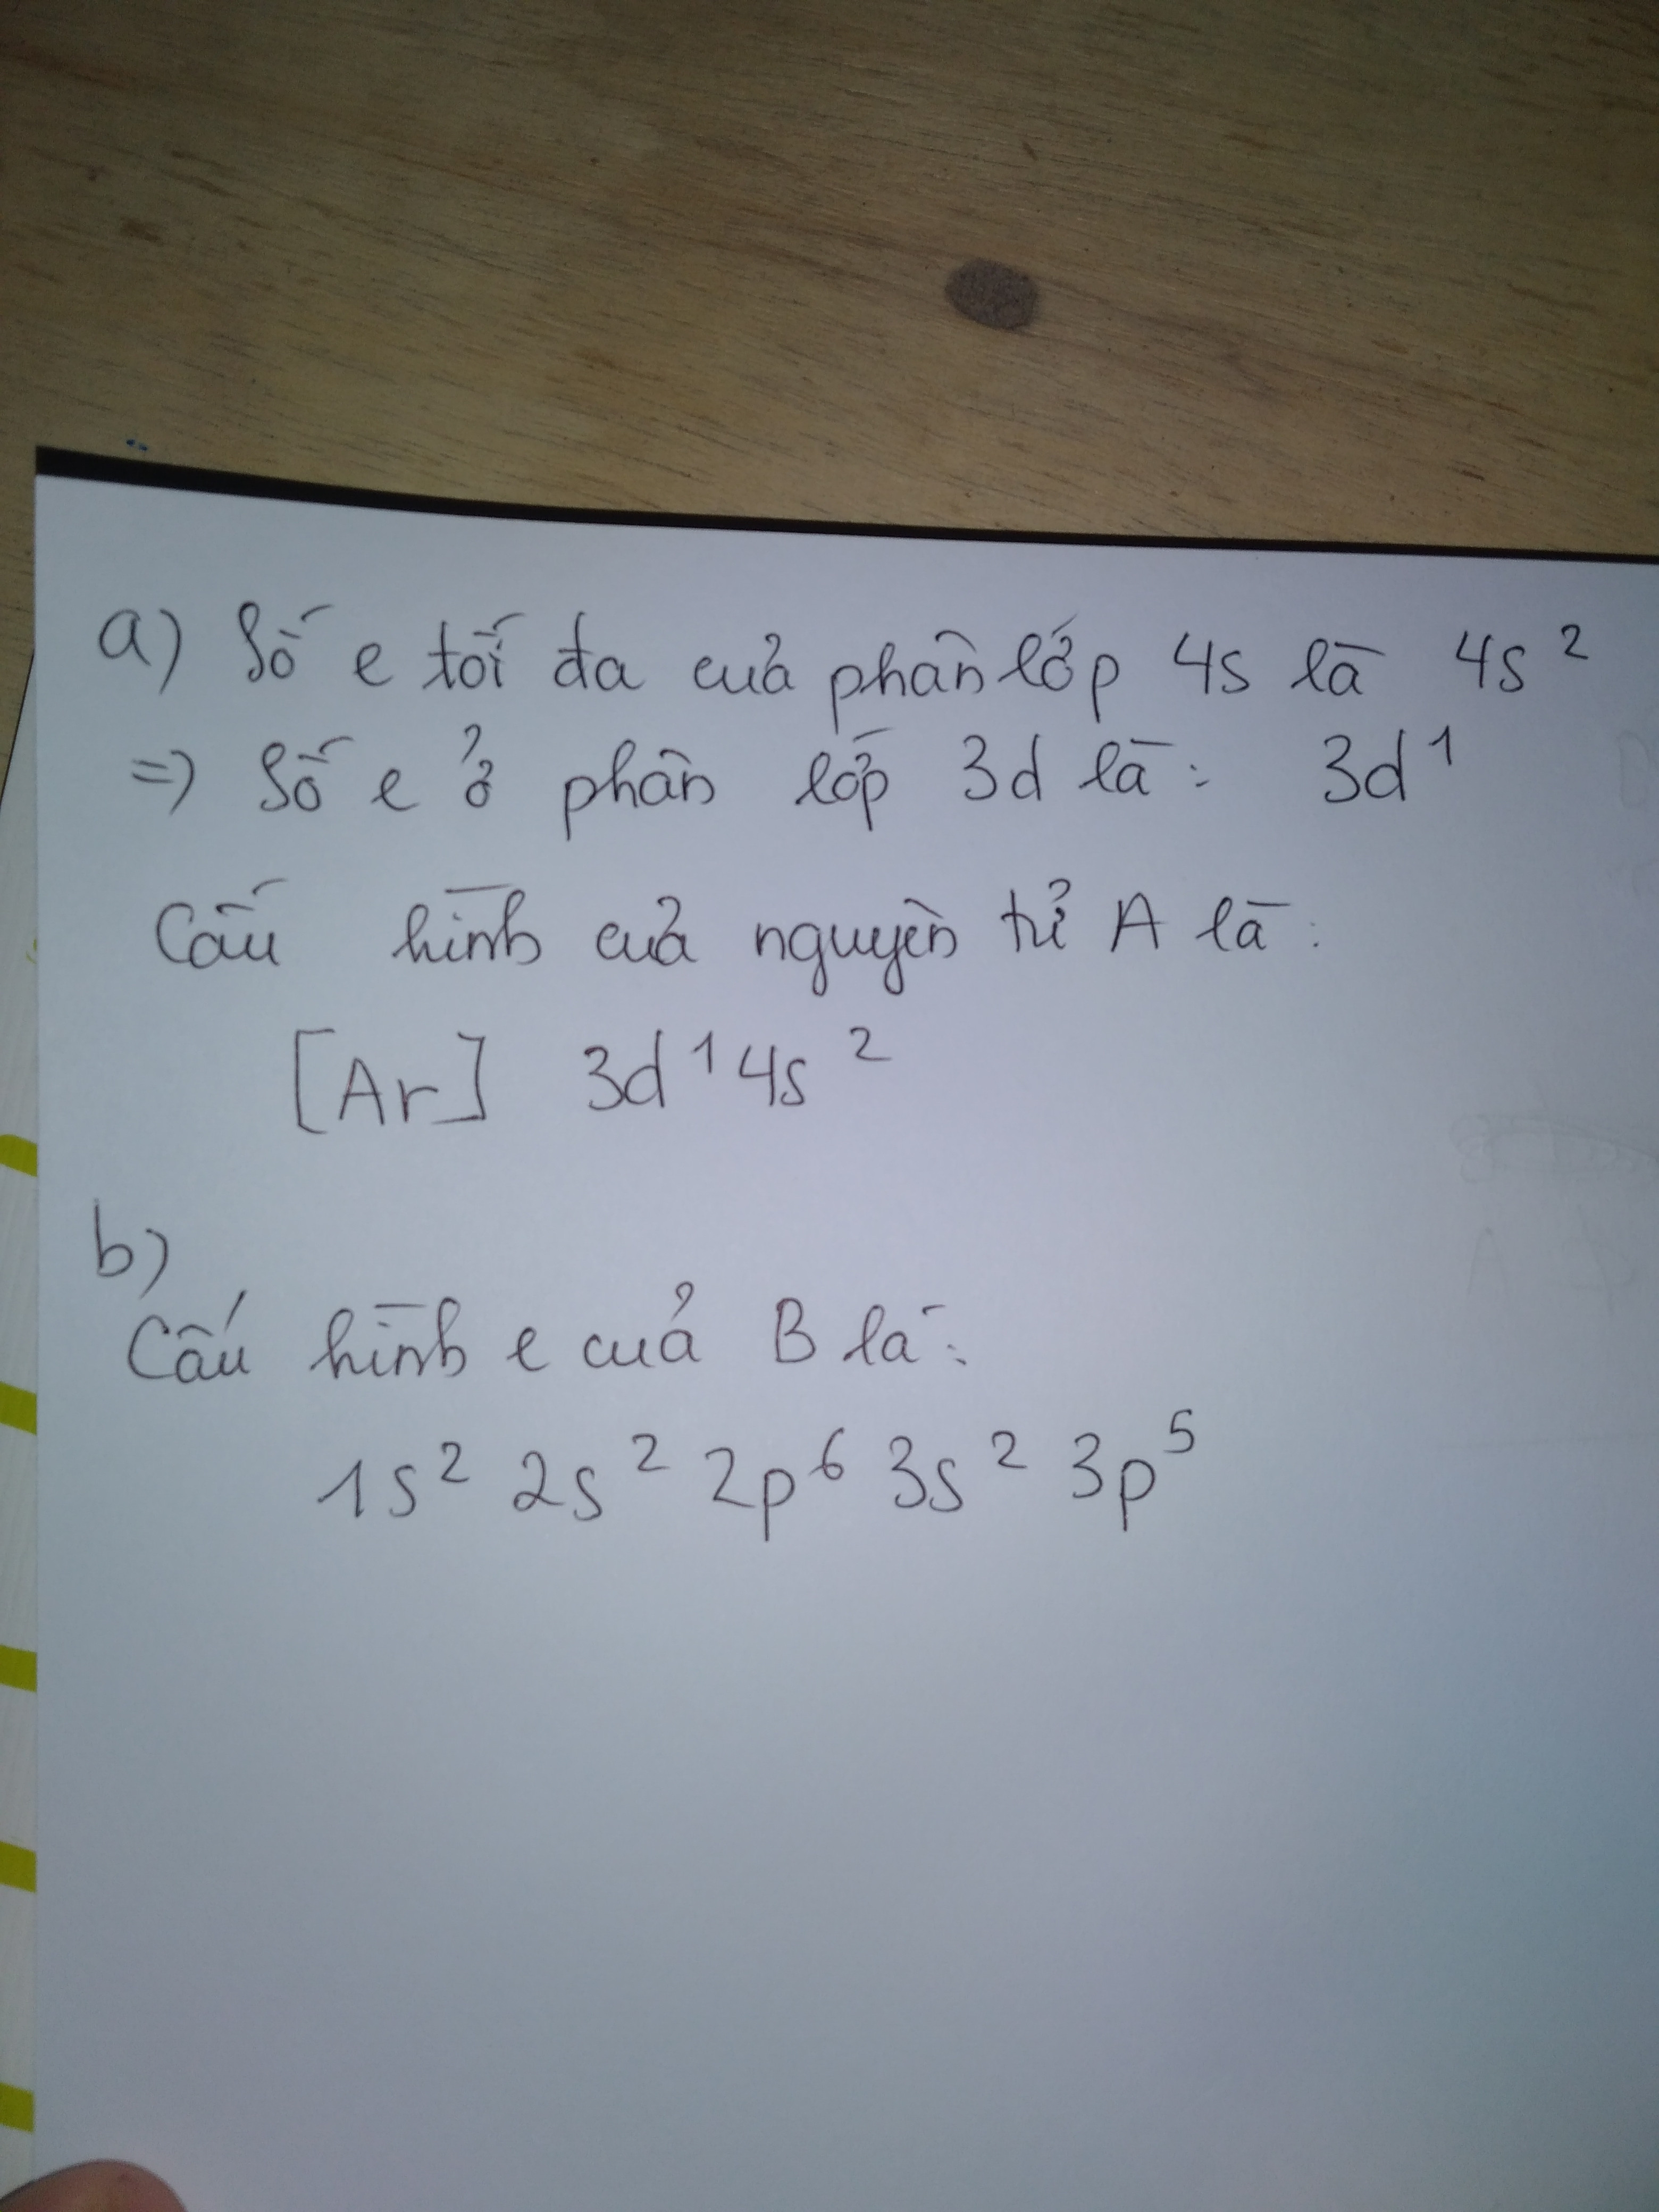 a) Số e tối đa của phân lớp 4s là 4s²
=> Số e ở phân lớp 3d là: 3d¹
Cấu hình của nguyên tử A là:
[Ar] 3d¹4s²
b)
Cấu hình e của B là:
1s² 2s² 2p⁶ 3s² 3p⁵